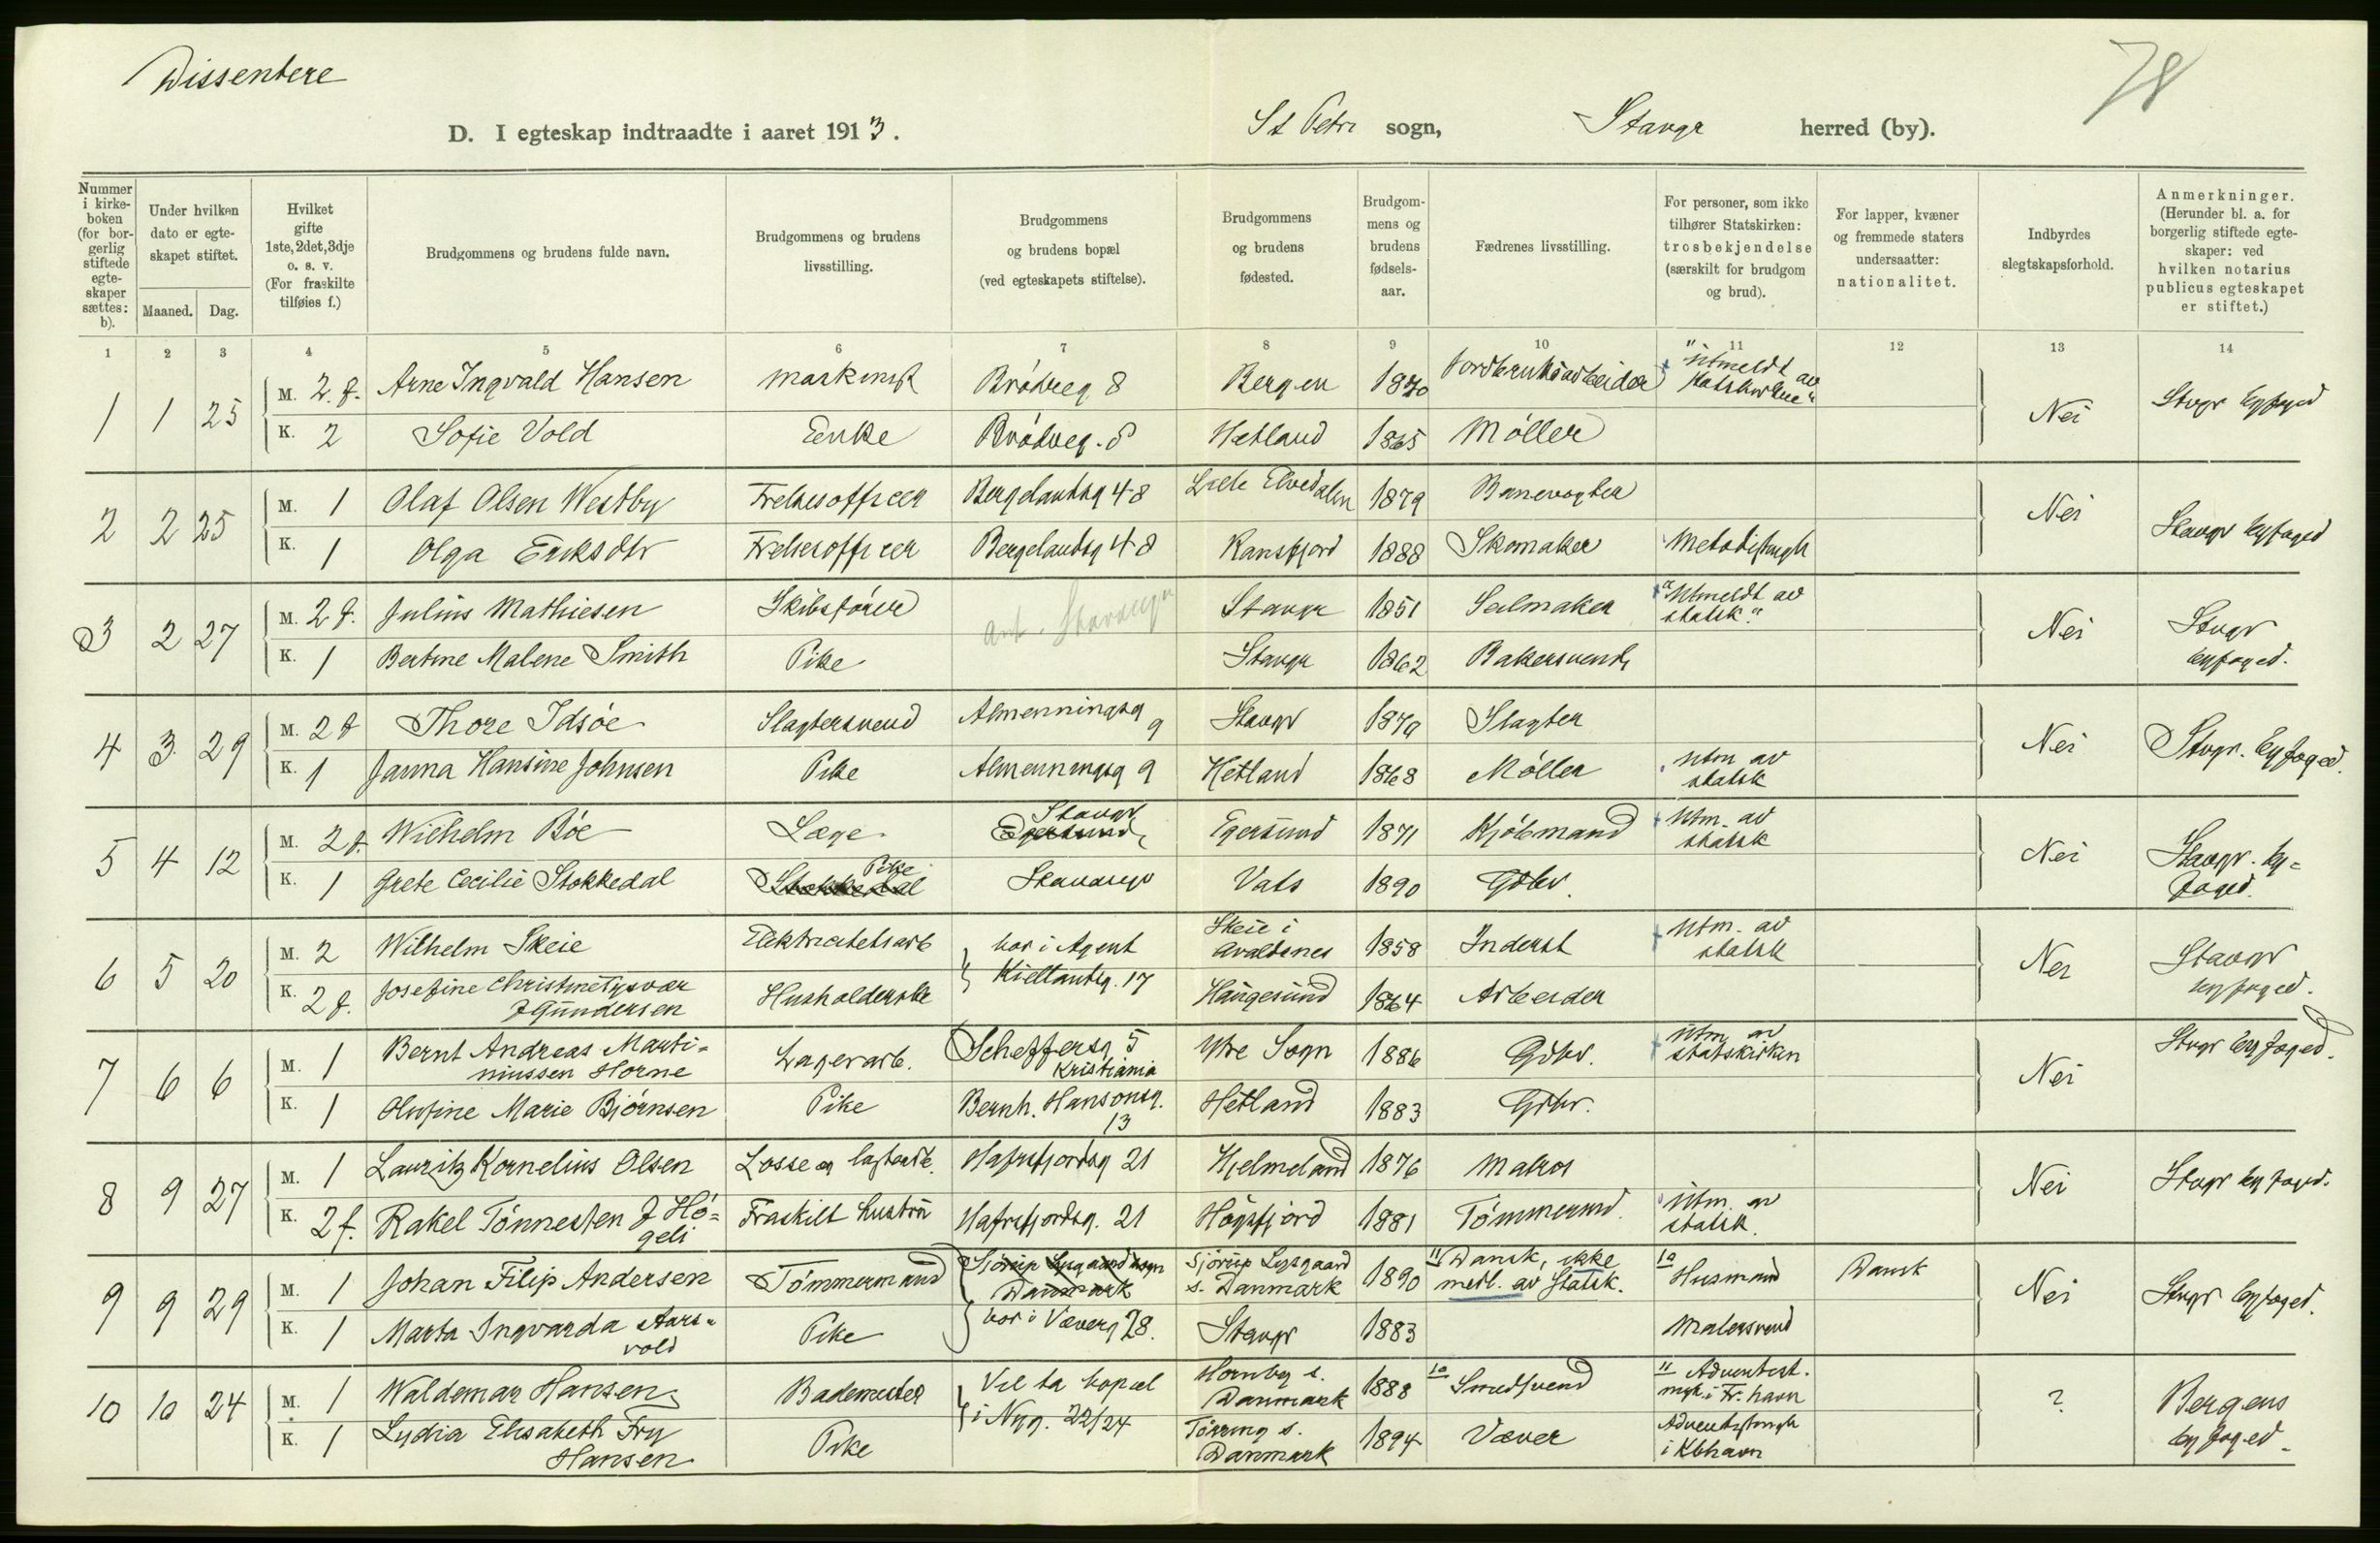 Dissentere
78
D. I egteskap indtraadte i aaret 1913.
St Petri sogn,
Stavgr herred (by).
Nummer i kirkeboken (for borgerlig stiftede egteskaper sættes: b).
Under hvilken dato er egteskapet stiftet.
Maaned. Dag.
Hvilket gifte 1ste, 2det, 3dje o. s. v. (For fraskilte tilføies f.)
Brudgommens og brudens fulde navn.
Brudgommens og brudens livsstilling.
Brudgommens og brudens bopæl (ved egteskapets stiftelse).
Brudgommens og brudens fødested.
Brudgommens og brudens fødselsaar.
Fædrenes livsstilling.
For personer, som ikke tilhører Statskirken: trosbekjendelse (særskilt for brudgom og brud).
For lapper, kvæner og fremmede staters undersaatter: nationalitet.
Indbyrdes slegtskapsforhold.
Anmerkninger. (Herunder bl. a. for borgerlig stiftede egteskaper: ved hvilken notarius publicus egteskapet er stiftet.)
1 2 3 4 5 6 7 8 9 10 11 12 13 14
1 1 25 M. 2. f. Arne Ingvald Hansen maskinist Brödreg 8 Bergen 1870 Jordbruksarbeider "Utmeldt av statskirken" Nei Stvgr byfoged
K. 2 Sofie Vold Enke Brödreg. 8 Hetland 1865 Möller
2 2 25 M. 1 Olaf Olsen Westby Frelsesofficer Bergelandsg 48 Lille Elvedalen 1879 Banevogter Nei Stavgr byfoged
K. 1 Olga Eriksdtr Frelsesofficer Bergelandsg 48 1888 Skomaker Metodistmgh
3 2 27 M. 2 f. Julius Mathiesen Skibsförer Ant. Stavanger Stavgr 1851 Seilmaker "Utmeldt av statsk." Nei Stvgr byfoged.
K. 1 Bertine Malene Smith Pike Stavgr 1862 Bakersvend
4 3 29 M. 2 f Thore Idsöe Slagtersvend Almenningsg 9 Stavgr 1879 Slagter Nei Stvgr. Byfoged.
K. 1 Janna Hansine Johnsen Pike Almenningsg 9 Hetland 1868 Möller Utm av statsk
5 4 12 M. 2 f. Wilhelm Böe Læge Stavgr Egersund Egersund 1871 Kjöbmand Utm. av statsk Nei Stavgr. byfoged.
K. 1 Grete Cecilie Stokkedal Pike Stokkedal Stavanger Vats 1890 Gdbr.
6 5 20 M. 2 Wilhelm Skeie Elektricitetsarb bor i Agent Kiellandsg. 17 Skeie i Avaldsnes 1858 Inderst Utm. av statsk Nei Stavgr byfoged.
K. 2 f. Josefine Christine Tysvær f Gundersen Husholderske Haugesund 1864 Arbeider
7 6 6 M. 1 Bernt Andreas Martiniussen Horne Lagerarb. Scheffersg 5 Kristiania Ytre Sogn 1886 Gdbr. Utm. av statskirken Nei Stvgr byfoged.
K. 1 Olufine Marie Björnsen Pike Bernh. Hansonsg. 13 Hetland 1883 Gdbr.
8 9 27 M. 1 Lauritz Kornelius Olsen Losse og lastearb. Hafrsfjordsg 21 Hjelmeland 1876 Matros Nei Stvgr byfoged.
K. 2 f. Rakel Tönnesen f Högeli Fraskilt hustru Hafrsfjordsg. 21 Högsfjord 1881 Tömmermd. Utm. av statsk.
9 9 29 M. 1 Johan Filip Andersen Tömmermand Sjörup Lysgaard sogn Danmark Sjörup Lysgaard s. Danmark 1890 11 Dansk, ikke medl. av Statsk. 10 Husmand Dansk Nei Stvgr byfoged.
K. 1 Marta Ingvarda Aarsvold Pike bor i Væverg 28. Stavgr 1883 Malersvend
10 10 24 M. 1 Waldemar Hansen Bademester Vil ta bopæl i Nyg. 22/24 Hornby s. Danmark 1888 10 Smedsvend 11 Adventist. mgh i Fr. havn ? Bergens byfoged.
K. 1 Lydia Elisabeth Fry Hansen Pike Törring s. Danmark 1894 Væver Adventistmgh i Kbhavn